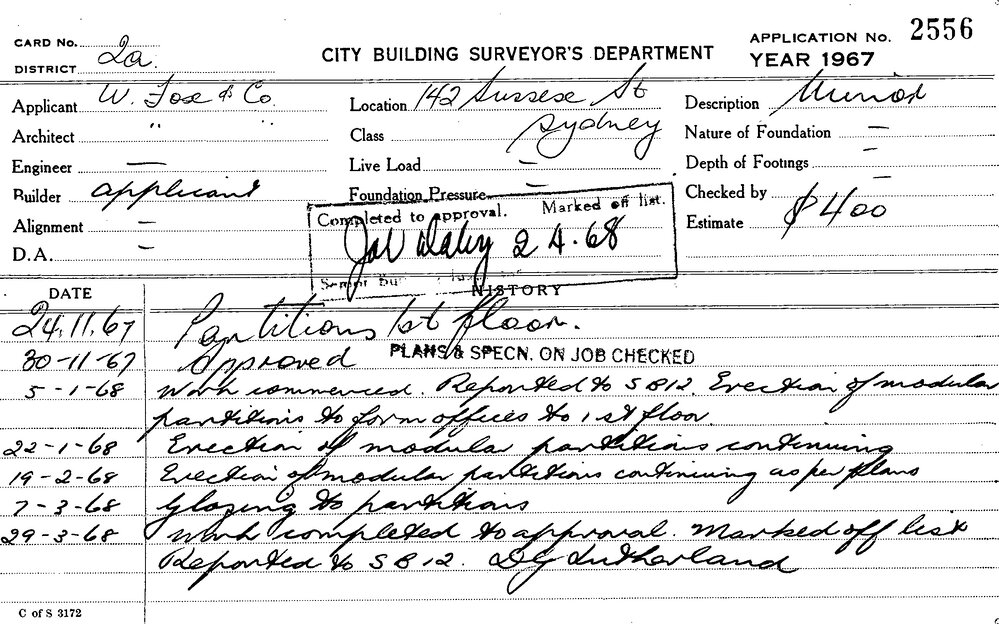 CARD No. 2a.
DISTRICT
CITY BUILDING SURVEYOR'S DEPARTMENT
APPLICATION No. 2556
YEAR 1967
Applicant W. Fose & Co.
Location 142 Sussex St
Sydney
Description Minor
Architect " "
Class
Nature of Foundation —
Engineer —
Live Load —
Depth of Footings —
Builder applicant
Foundation Pressure —
Checked by
Alignment —
Estimate $400
D.A. —
Completed to approval. Marked off list.
2 4. 68
HISTORY
DATE
24.11.67 Partitions 1st floor.
30-11-67 Approved PLANS & SPECN. ON JOB CHECKED
5-1-68 Work commenced. Reported to S B 12. Erection of modular
partitions to form offices to 1st floor.
22-1-68 Erection of modular partitions continuing
19-2-68 Erection of modular partitions continuing as per plans
7-3-68 Glazing to partitions
29-3-68 Work completed to approval. Marked off list
Reported to S B 12. DG Sutherland
C of S 3172